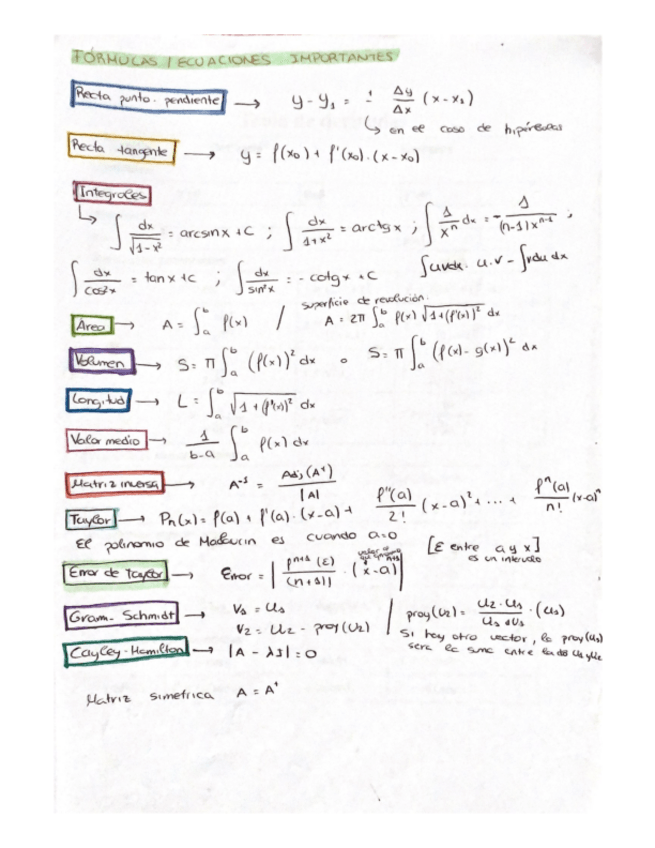 FÓRMULAS / ECUACIONES IMPORTANTES
Recta punto-pendiente → y - y₁ = ± Δy/Δx (x - x₁)
↳ en el caso de hipérbolas
Recta tangente → y = f(x₀) + f'(x₀)·(x - x₀)
Integrales
↳ ∫ dx/√(1-x²) = arcsinx + C ; ∫ dx/(1+x²) = arctgx ; ∫ 1/xⁿ dx = - 1/((n-1)xⁿ⁻¹) ;
∫ dx/cos²x = tanx + C ; ∫ dx/sin²x = - cotgx + C ∫udv dx = u.v - ∫vdu dx
Area → A = ∫ₐᵇ f(x) / superficie de revolución: A = 2π ∫ₐᵇ f(x) √(1+(f'(x))²) dx
Volumen → S = π ∫ₐᵇ (f(x))² dx o S = π ∫ₐᵇ (f(x) - g(x))² dx
Longitud → L = ∫ₐᵇ √(1+(f'(x))²) dx
Valor medio → 1/(b-a) ∫ₐᵇ f(x) dx
Matriz inversa → A⁻¹ = Adj(Aᵗ)/|A|
Taylor → Pn(x) = f(a) + f'(a)·(x-a) + f''(a)/2! (x-a)² + ... + fⁿ(a)/n! (x-a)ⁿ
El polinomio de Maclaurin es cuando a=0 [ε entre a y x]
es un intervalo
Error de Taylor → Error = | fⁿ⁺¹(ε)/(n+1)! · (x-a)ⁿ⁺¹ |
Gram-Schmidt → V₁ = U₁
V₂ = U₂ - proy(U₂) / proy(U₂) = U₂·U₁/U₁·U₁ · (U₁)
Si hay otro vector, la proy(U₃)
sera la suma entre la de U₁ y U₂
Cayley-Hamilton → |A - λI| = 0
Matriz simetrica A = Aᵗ